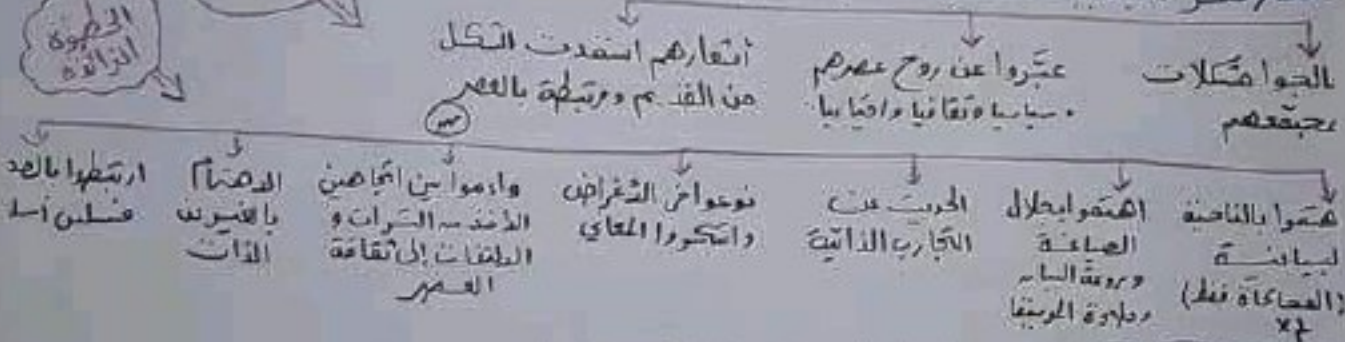 الخطوة
الزائدة
عالجوا مشكلات
مجتمعهم
عبّروا عن روح عصرهم
سياسيا وثقافيا واجتماعيا
أشعارهم استمدت الشكل
من القديم ومرتبطة بالعصر
اهتموا بالناحية
البيانية
(المحاكاة فقط)
اهتموا بجلال
الصياغة
وروعة البيان
وحلاوة الموسيقا
الحديث عن
التجارب الذاتية
نوعوا في الأغراض
وابتكروا المعاني
واءموا بين اتجاهين
الأخذ من التراث و
الالتفات إلى ثقافة
العصر
الاهتمام
بالتعبير عن
الذات
ارتبطوا